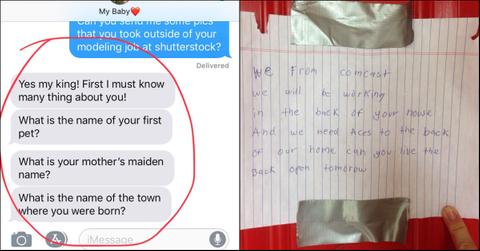 My Baby❤️
Can you send me some pics
that you took outside of your
modeling job at shutterstock?
Delivered
Yes my king! First I must know
many thing about you!
What is the name of your first
pet?
What is your mother's maiden
name?
What is the name of the town
where you were born?
iMessage
We From comcast
we will be working
in the back of your howe
And we need Aces to the back
of our home can you live the
Back open tomorow